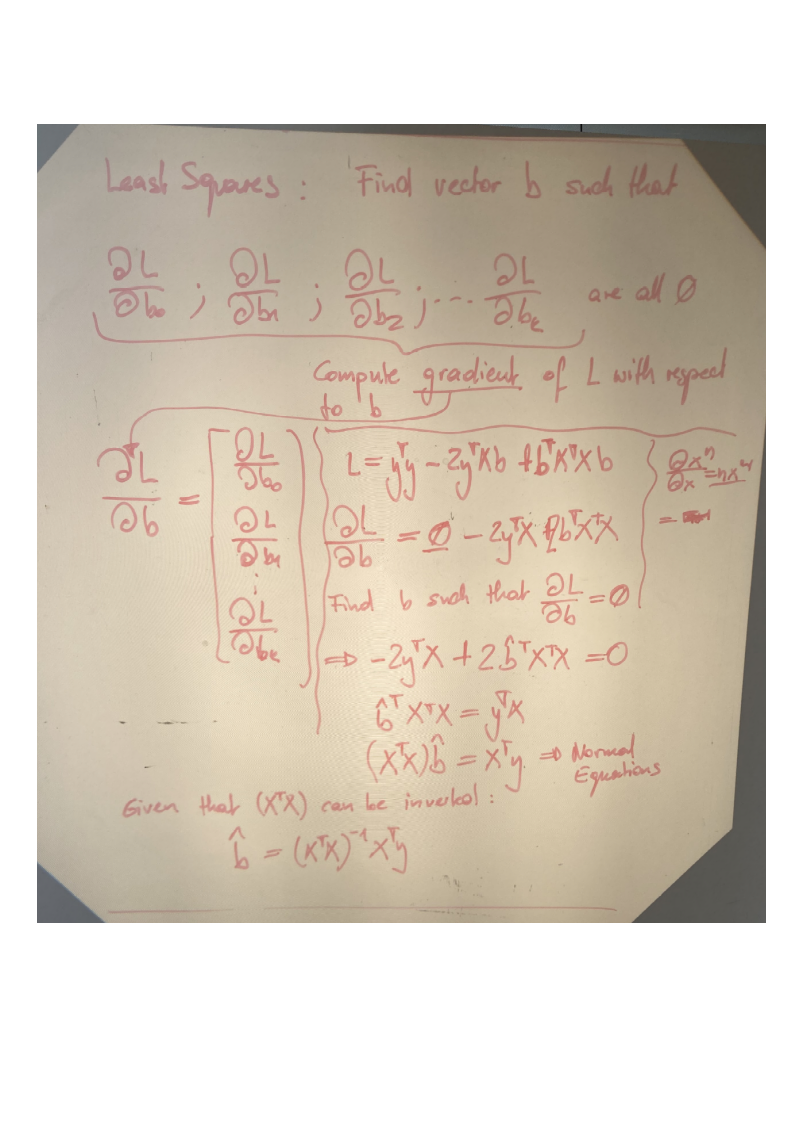 Least Squares : Find vector b such that
∂L/∂b₀ ; ∂L/∂b₁ ; ∂L/∂b₂ ; ... ∂L/∂bₖ are all ∅
Compute gradient of L with respect
to b
∂L/∂b = [∂L/∂b₀ ∂L/∂b₁ ⋮ ∂L/∂bₖ]
L = yᵀy - 2yᵀXb + bᵀXᵀXb
∂L/∂b = ∅ - 2yᵀX + 2bᵀXᵀX
Find b such that ∂L/∂b = ∅
⇒ -2yᵀX + 2b̂ᵀXᵀX = 0
b̂ᵀXᵀX = yᵀX
(XᵀX)b̂ = Xᵀy ⇒ Normal
Equations
∂xⁿ/∂x = nxⁿ⁻¹
=
Given that (XᵀX) can be inverted :
b̂ = (XᵀX)⁻¹Xᵀy